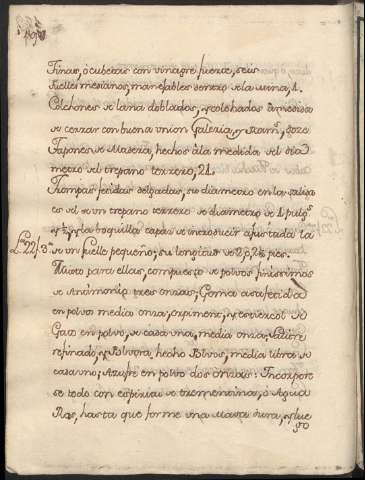 Tinas, ò cubetas con vinagre fuerte, seis
fuelles mesianos, manefables dentro de la mina, 1.
Colchones de lana doblados, y colchados à medida
de cerrar con buena union Galeria, y Ram.ˢ, doze
Tapones de Madera, hechos à la medida del dia
metro del trepano terrero, 21.
Trompas fetidas delgadas, su diametro en las salidas
es el de un trepano terrero de diametro de 1 pulgˢ
y ½ y la boquilla capas de introducir ajustada la
L.ᵃ 22 f. 3ᵃ de un fuelle pequeño, su longitud de 2, ò 2½ pies.
Mixto para ellas, compuesto de polvos finissimos
de Antimonio tres onzas; Goma asafetida
en polvo media onza, expiment, y estiercol de
Gato en polvo, de cada una, media onza; Salitre
refinado, y Polvora, hecho Polvos, media libra de
cada uno; Azufre en polvo dos onzas: Incorpore
se todo con espiritu de trementina, ò Agua
Ras, hasta que forme una Massa dura, y lue
go